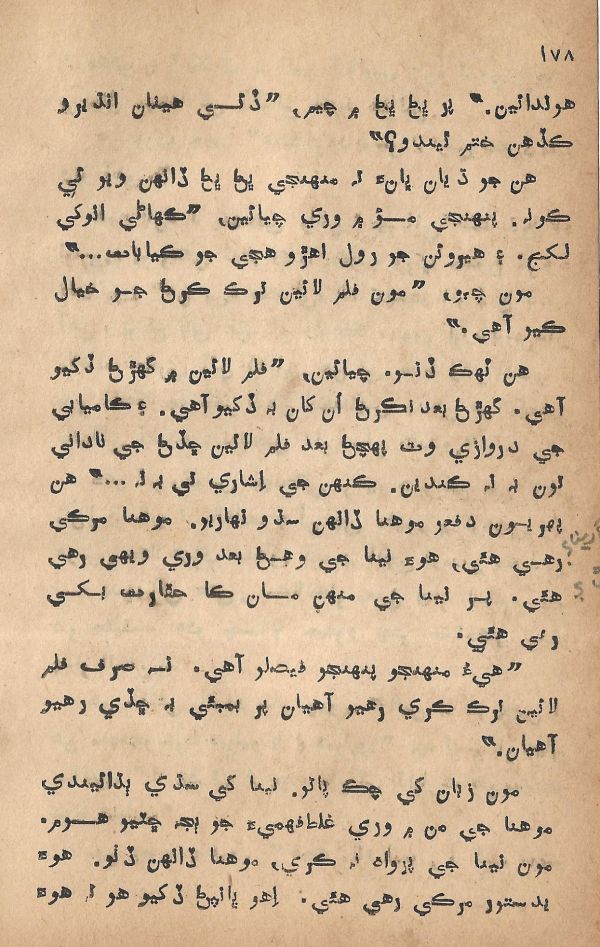 ١٧٨
هوندائين.” پر پڻ پڻ ۾ چيم, ”ڏئسي هينئان انڌيرو
ڪڏهن ختم ٿيندو؟”
هن جو ڌيان پاڻ ۽ نہ منهنجي پڻ پڻ ڏانهن ويو ئي
ڪونہ. پنهنجي مسؤ ۾ وري چيائين, ”ڪهاڻي انوکي
لکج. ۽ هيروئن جو رول اهڙو هجي جو ڪيابات...”
مون چيو, ”مون فلم لائين ترڪ ڪرڻ جسو خيال
ڪيو آهي.”
هن ٽهڪ ڏنسو. چيائين, ”فلم لائين ۾ گهڙڻ ڏکيو
آهي. گهڙڻ بعد نڪرڻ اُن کان بہ ڏکيو آهي. ۽ ڪاميابي
جي دروازي وٽ پهچڻ بعد فلم لائين ڇڏڻ جي ناداني
تون بہ نہ ڪندين. ڪنهن جي اِشاري تي بہ نہ ...” هن
پهريون دفعو موهنا ڏانهن سڌو نهاريو. موهنا مرڪي
رهسي هئي, هوءَ نينا جي وهڻ بعد وري ويهي رهي
هئي. پسر نينا جي منهن مسان ڪا حقارت بکسي
رهي هئي.
”هيءُ منهنجو پنهنجو فيصلو آهي. نسہ صرف فلم
لائين ترڪ ڪري رهيو آهيان پر بمبئي بہ ڇڏي رهيو
آهيان.”
مون زبان کي چڪ پاتو. نينا کي سڌي ٻڌائيندي
موهنا جي من ۾ وري غلطفهميءَ جو ٻج ڇٽيو هسوم.
مون نينا جي پرواھ نہ ڪري, موهنا ڏانهن ڏٺو. هوءَ
بدستور مرڪي رهي هئي. اِهو ڀانپڻ ڏکيو هو تہ هوءَ